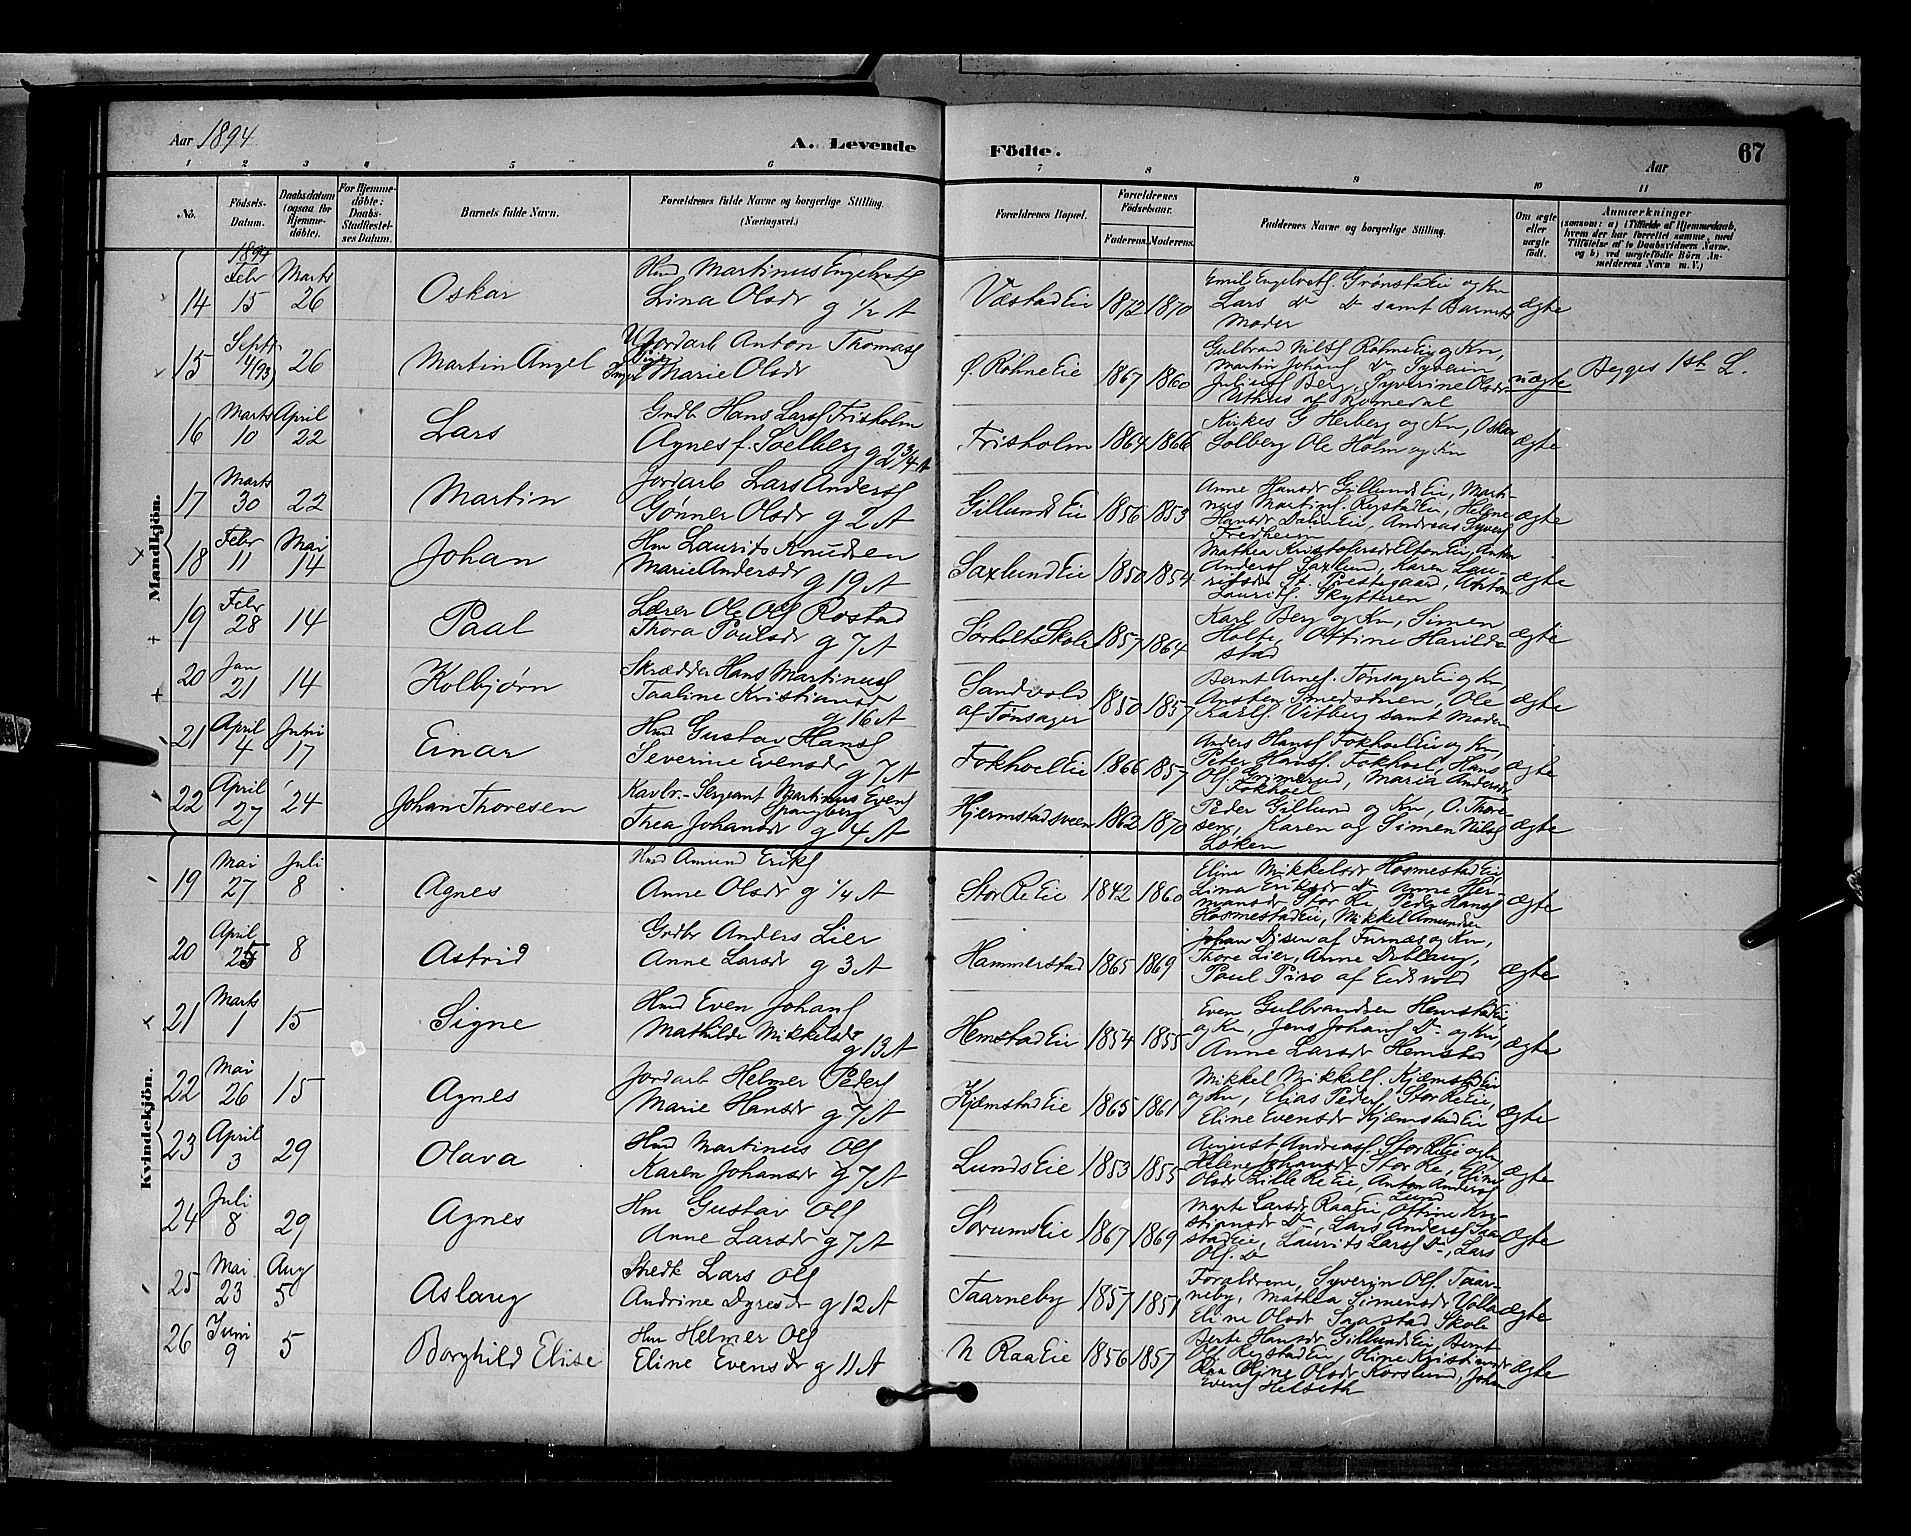 Aar 1894
A. Levende Födte.
Aar
67
1 2 3 4 5 6 7 8 9 10 11
No.
Födsels-Datum.
Daabsdatum (ogsaa for Hjemme-döbte).
For Hjemme-döbte: Daabs-Stadfestel-ses Datum.
Barnets fulde Navn.
Forældrenes fulde Navne og borgerlige Stilling. (Næringsvei.)
Forældrenes Bopæl.
Forældrenes Födselsaar.
Faderens. Moderens.
Faddernes Navne og borgerlige Stilling.
Om ægte eller uægte födt.
Anmærkninger
(saasom: a) i Tilfælde af Hjemmedaab,
hvem der har forrettet samme, med
Tilföielse af to Daabsvidners Navne,
og b) ved uægtefödte Börn An-
melderens Navn m. V.)
Mandkjön.
1894
14 Febr 15 Marts 26 Oskar
Hmd Martinus Engebrets
Lina Olsdr g 1/2 A
Væstad Eie 1872 1870
Emil Engebrets. Grønstad Eie og Kn
Lars do do samt Barnets
Moder
ægte
15 Septr 11/93) 26 Martin Angel
Jordarb Anton Thomass
Pige Marie Olsdr
Ø. Røhne Eie 1867 1860
Gulbrand Nilss Røhne Eie og Kn,
Martin Johans do Syverin
Julius Berg, Syverine Olsdr
Uthus af Romedal
uægte
Begges 1ste L.
16 Marts 10 April 22 Lars
Grdbr Hans Larss Frisholm
Agnes f. Soelberg g 2 3/4 A
Frisholm 1864 1866
Kirkes G Herberg og Kn, Oskar
Solberg Ole Holm og Kn
ægte
17 Marts 30 22 Martin
Jordarb Lars Anderss
Gønner Olsdr g 2 A
Gillund Eie 1856 1853
Anne Hansdr Gillunds Eie, Marti-
nus Martins. Rejstad Eie, Helene
Hansdr Dalen Eie, Andreas Syvers
Fredheim
ægte
18 Febr 11 Mai 14 Johan
Hm Laurits Knudsen
Marie Andersdr g 19 A
Saxlund Eie 1850 1854
Mathea Kristofersdr Elton Eie, Anton
Anders Saxlund, Karen Lau-
ritsdr St. Prestegaard, Anton
Laurits. Skytteren
ægte
19 Febr 28 14 Paal
Lærer Ole Ols Rostad
Thora Paulsdr g 7 A
Sørholte Skole 1857 1864
Karl Berg og Kn, Simen
Holte, Oftine Harilds-
stad
ægte
20 Jan 21 14 Kolbjørn
Skrædder Hans Martinuss
Taaline Kristiansdr g 16 A
Sandvold
af Tønsager 1850 1857
Bernt Arnes. Tønsager Eie og Kn,
Ansten Smedstuen, Ole
Karls. Vitberg samt Moder
ægte
21 April 4 Juni 17 Einar
Hmd Gustav Hanss
Severine Evensdr g 7 A
Fokhoel Eie 1866 1857
Anders Hanss Fokhoel Eie og Kn,
Peter Hanss. Fokhoel, Hans
Ols. Grimerud, Maria Andersdr
Fokhoel
ægte
22 April 27 24 Johan Thoresen
Kavbr-Sergeant Martinus Evens
Spangberg
Thea Johansdr g 4 A
Hjermstadsveen 1862 1870
Peder Gillund og Kn, O. Thore-
sen, Karen og Simen Nilss
Løken
ægte
Kvindekjön.
19 Mai 27 Juli 8 Agnes
Hmd Amund Eriks
Anne Olsdr g 1/4 A
Stor Re Eie 1842 1860
Eline Mikkelsdr Hosmestad Eie,
Lina Eriksdr do Anne Her-
mansdr Stor Re, Peder Hanss
Hosmestad Eie, Mikkel Amundsen
ægte
20 April 25 8 Astrid
Grdbr Anders Lier
Anne Larsdr g 3 A
Hammerstad 1865 1869
Johan Disen af Furnæs og Kn,
Thore Lier, Anne Deblaug,
Paul Piro af Eidsvold
ægte
21 Marts 1 15 Signe
Hmd Even Johans
Mathilde Mikkelsdr g 13 A
Hemstad Eie 1854 1855
Even Gulbrandsen Hemstad Eie
og Kn, Jens Johans do og Kn,
Anne Larsdr Hemstad
ægte
22 Mai 26 15 Agnes
Jordarb Helmer Peders
Marie Hansdr g 7 A
Kjæmstad Eie 1865 1861
Mikkel Mikkels. Kjæmstad Eie
og Kn, Elias Peders Stor Re Eie,
Eline Evensdr Kjæmstad Eie
ægte
23 April 3 29 Olava
Hmd Martinus Ols
Karen Johansdr g 7 A
Lunds Eie 1853 1855
August Andreass. Stor Re Eie og Kn
Helene Johansdr Stor Re, Eline
Olsdr Lille Re Eie, Anton Anders
Lund
ægte
24 Juli 8 29 Agnes
Hm Gustav Ols
Anne Larsdr g 7 A
Sørums Eie 1867 1869
Marte Larsdr Raa Eie Oftine Kri-
stiansdr do, Lars Anders Saa-
stad Eie, Laurits Larss do, Lars
Ols. do
ægte
25 Mai 23 Aug 5 Aslaug
Snedk Lars Ols
Andrine Dyresdr g 12 A
Taarneby 1857 1851
Forældrene, Syverin Ols. Taar-
neby, Mathea Simensdr Volla
Eline Olsdr Saastad Skole
ægte
26 Juni 9 5 Borghild Elise
Hm Helmer Ols
Eline Evensdr g 11 A
N Raa Eie 1856 1857
Berte Hansdr Gillunds Eie, Bernt
Ols Rejstad Eie, Oline Kristiansdr
Raa Oline Olsdr Korslund, Johan
Evens Helseth
ægte